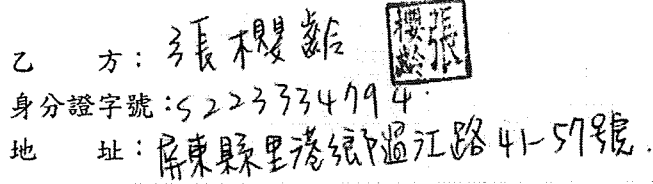 乙 方：張櫻齡
張櫻齡
身分證字號：S223334794
地 址：屏東縣里港鄉過江路41-57號.